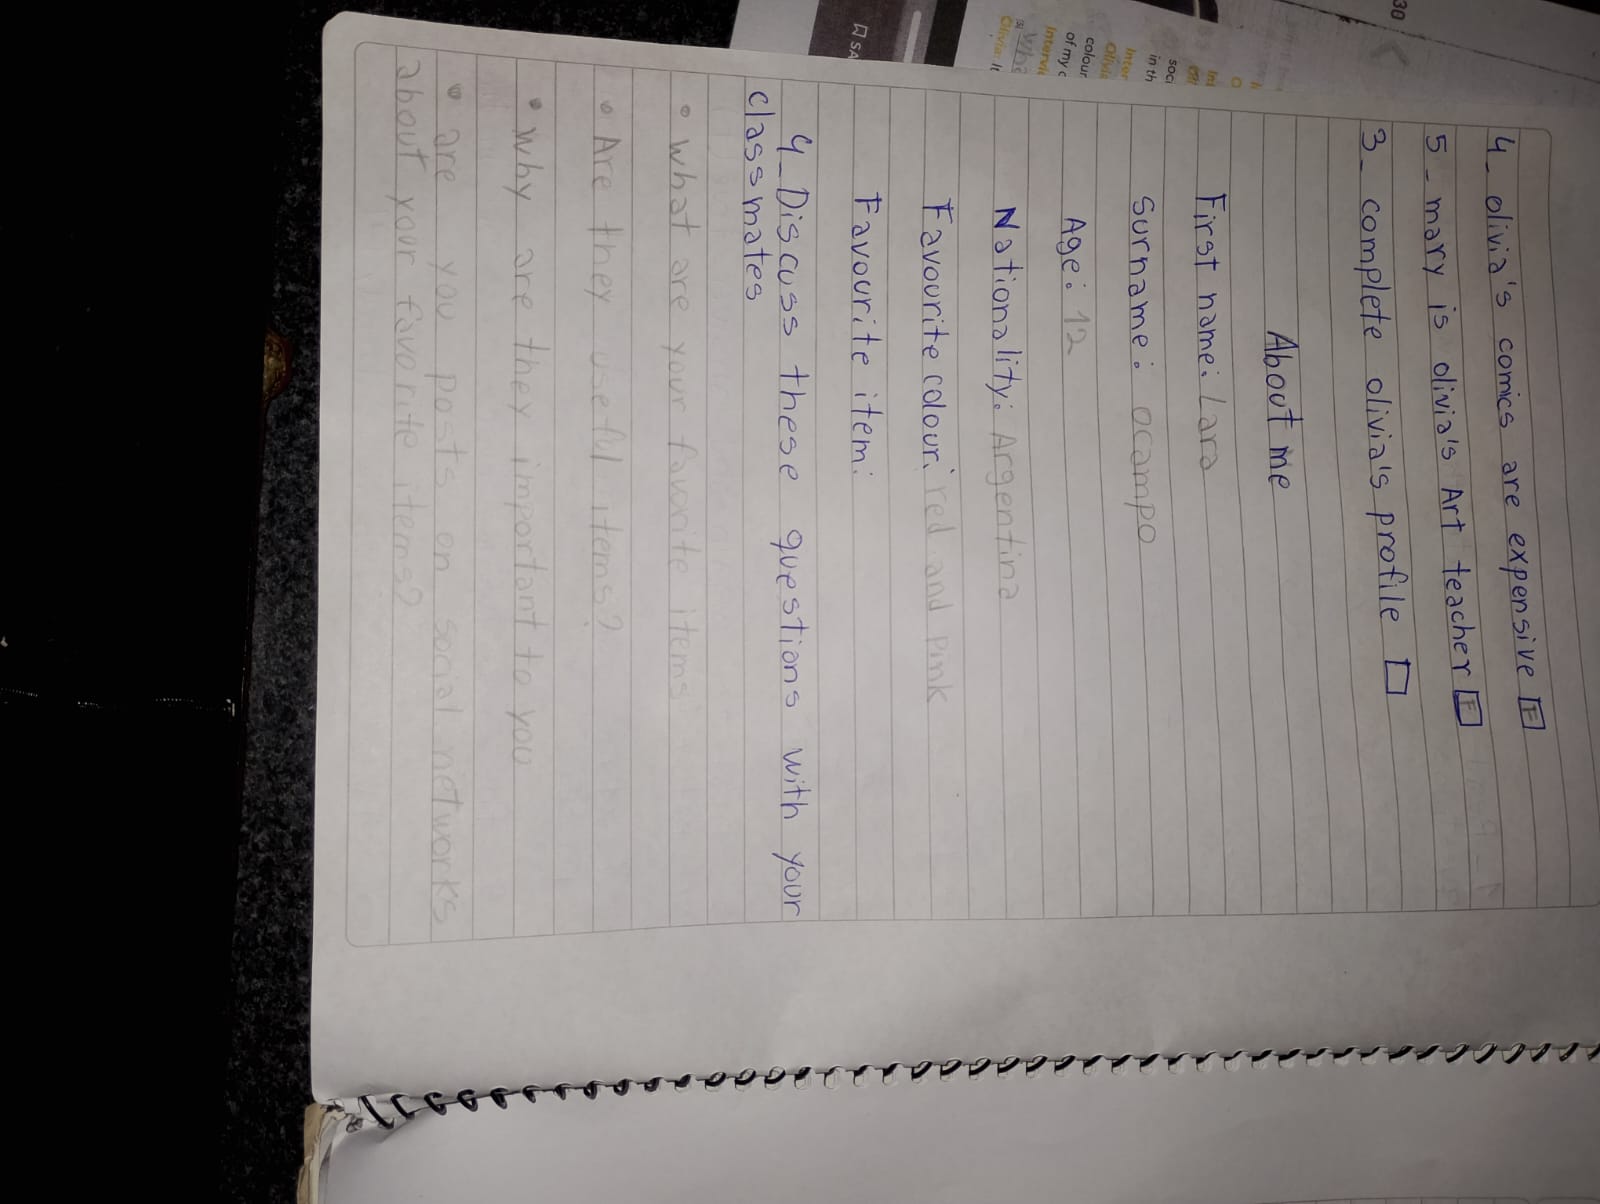 4_ olivia's comics are expensive F
5_ mary is olivia's Art teacher F
3_ complete olivia's profile
About me
First name: Lara
Surname: ocampo
Age: 12
Nationality: Argentina
Favourite colour: red and pink
Favourite item:
4_ Discuss these questions with your
classmates
• What are your favorite items
• Are they useful items?
• Why are they important to you
• are you posts on social networks
about your favorite items?
30
SA
soci
in th
Inter
Olivia
colour
of my c
Intervi
Olivia: It